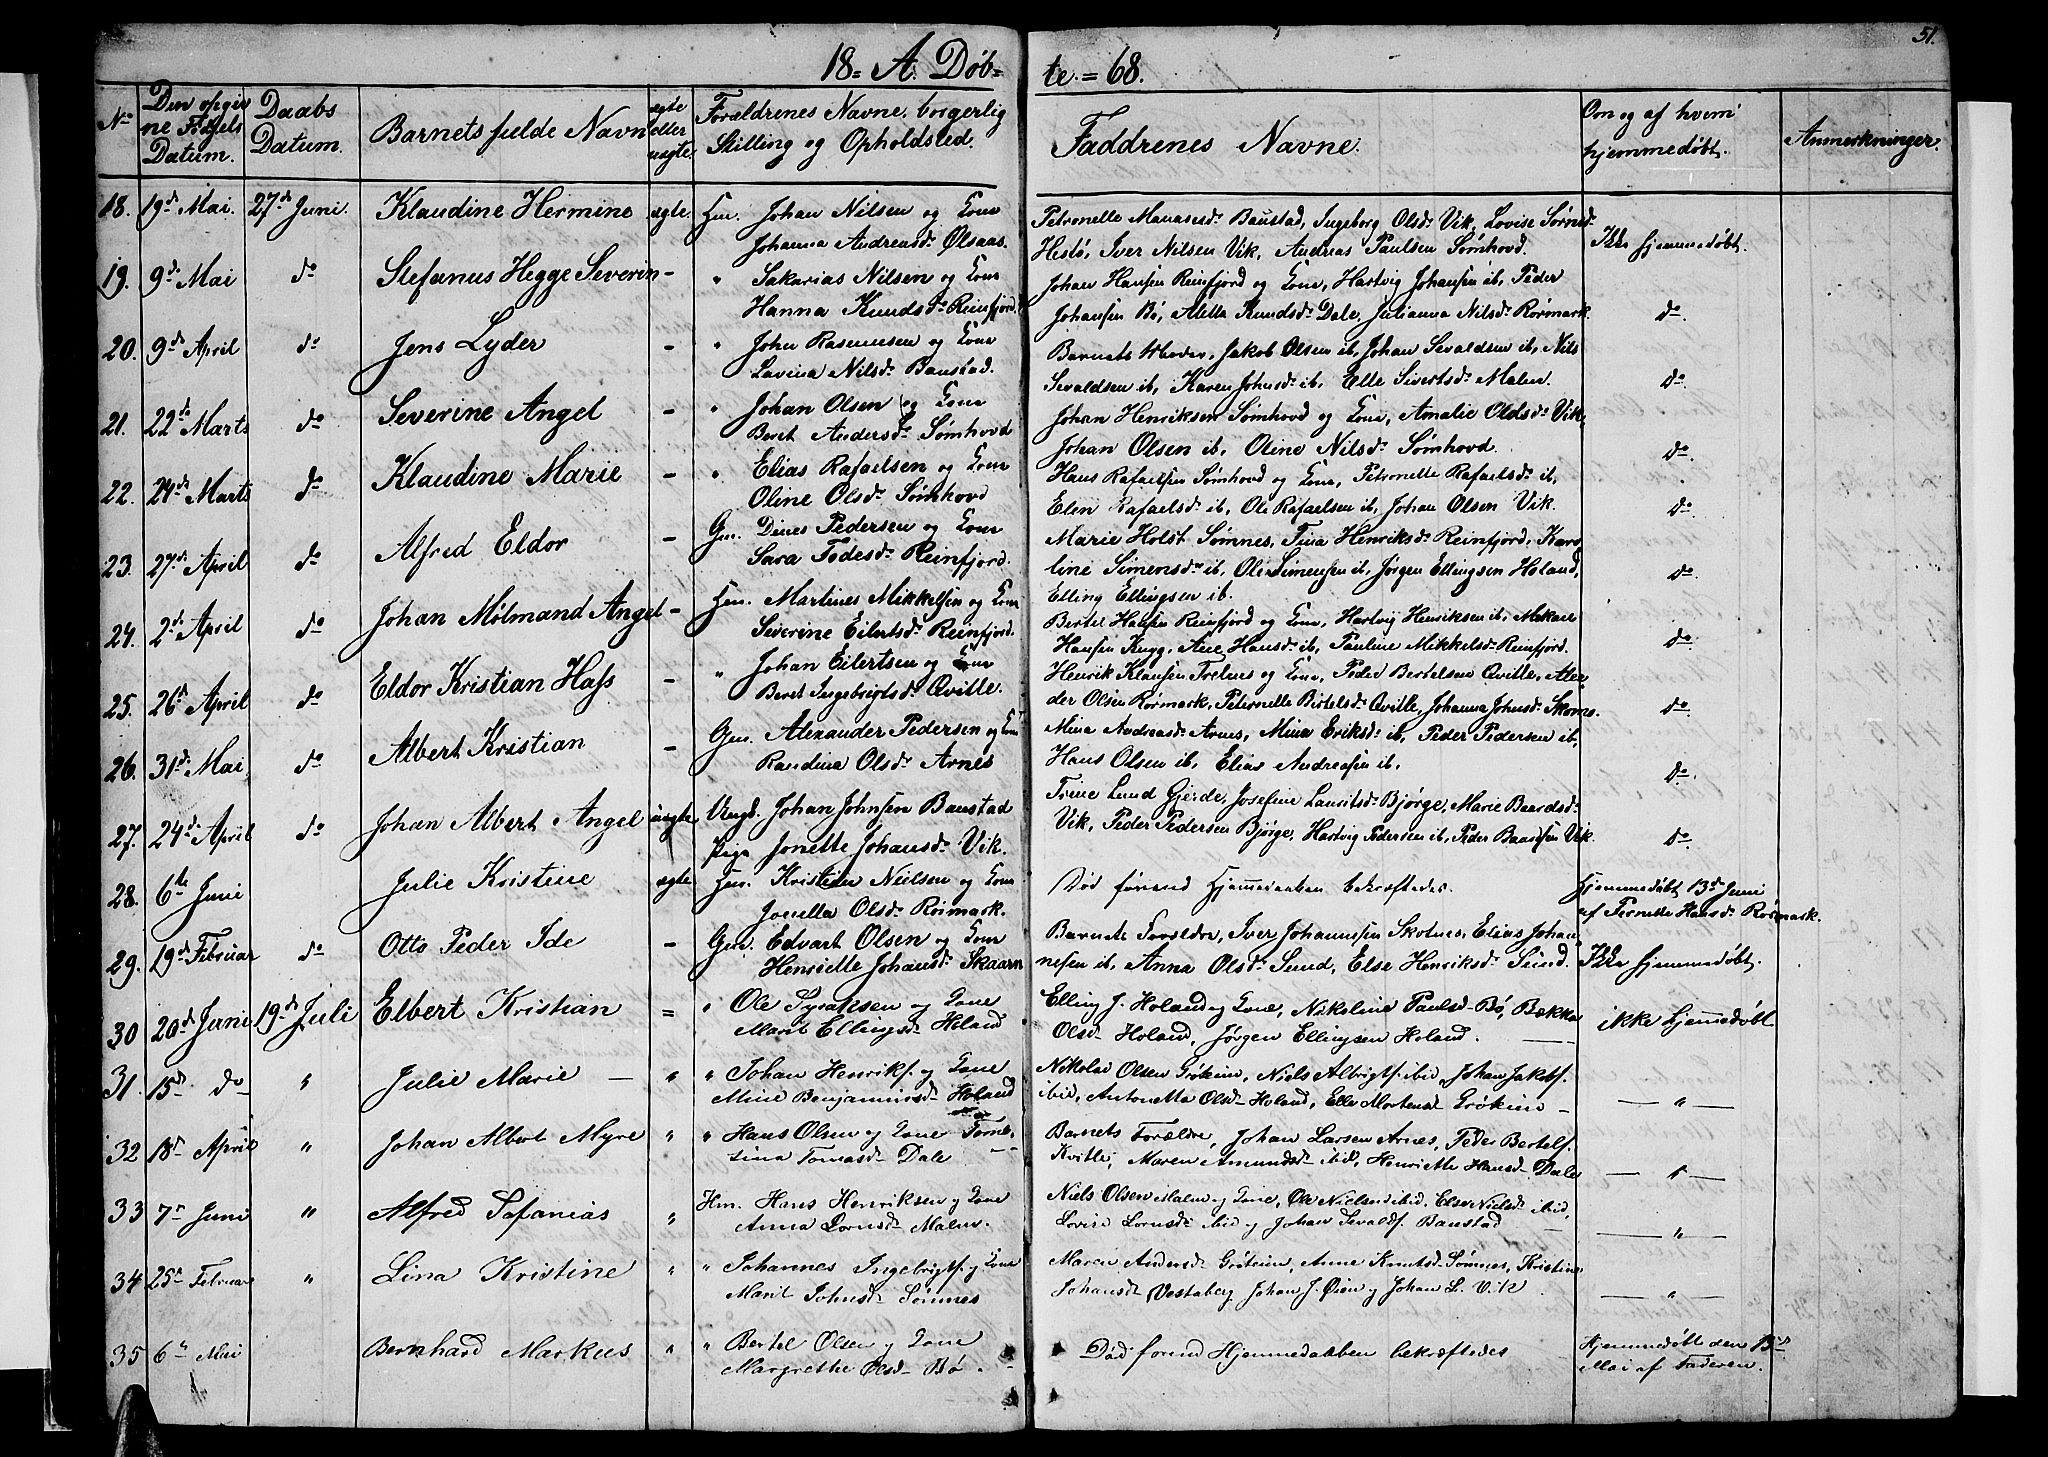 51.
18= A. Døb= te = 68.
No Den opgivne Fødsels Datum. Daabs Datum. Barnets fulde Navn ægte eller uægte. Forældrenes Navne, borgerlig Stilling og Opholdsted. Faddrenes Navne. Om og af hvem hjemmedøbt. Anmerkninger.
18. 19d Mai. 27d Juni. Klaudine Hermine ægte. Hm. Johan Nilsen og Kone Petronelle Manasesd. Baustad, Ingeborg Olsd. Vik, Lovise Sørensd.
Johanna Andreasd. Olsaas. Hestø, Iver Nilsen Vik, Andreas Paulsen Sømhovd. Ikke hjemmedøbt.
19. 9d Mai do Stefanus Hegge Severin - " Sakarias Nilsen og Kone Johan Hansen Reinfjord og Kone, Hartvig Johansen ib, Peder
Hanna Knudsd. Reinfjord. Johansen Bø, Aletta Knudsd. Dale, Julianna Nilsd. Rørmark. do.
20. 9d April do Jens Lyder - " John Rasmusen og Kone Barnets Moder, Jakob Olsen ib, Johan Sevaldsen ib, Nils
Lavina Nilsd. Baustad. Sevaldsen ib, Karen Johnsd. ib, Elle Sivertsd. Malm. do
21. 22d Marts do Severine Angel - " Johan Olsen og Kone Johan Henriksen Sømhovd og Kone, Amalie Olsd. Vik,
Beret Andersd. Sømhovd Johan Olsen ib, Oline Nilsd. Sømhovd. do.
22. 24d Marts do Klaudine Marie - " Elias Rafaelsen og Kone Hans Rafaelsen Sømhovd og Kone, Petronelle Rafaelsd. ib,
Oline Olsd. Sømhovd Elen Rafaelsd. ib, Ole Rafaelsen ib, Johan Olsen Vik. do
23. 27d April do Alfred Eldor - Gm. Dines Pedersen og Kone Marie Holst Sømnes, Tina Henriksd. Reinfjord, Karo
Sara Todesd. Reinfjord. line Simensd. ib, Ole Simensen ib, Jørgen Ellingsen Holand, do
Elling Ellingsen ib.
24. 2d April do Johan Mølmand Angel - Hm. Martines Mikkelsen og Kone Bertel Hansen Reinfjord og Kone, Hartvig Henriksen ib, Mikal
Severine Eilertsd. Reinfjord. Hansen Kugg, Ane Hansd. ib, Pauline Mikkelsd. Reinfjord. do
25. 26d April do Eldor Kristian Hass - " Johan Eilertsen og Kone Henrik Klausen Trelnes og Kone, Peder Bertelsen Qville,
Beret Ingebrigtsd. Qville. der Olsen Rørmark, Peternelle Birtelsd. Qville, Johanna Johnsd. do.
26. 31d Mai do Albert Kristian - Gm. Alexander Pedersen og Kone Mina Andreasd. Arnes, Mina Eriksd. ib, Peder Pedersen ib,
Randina Olsd. Arnes Hans Olsen ib, Elias Andreasen ib. do.
27. 24d April do Johan Albert Angel uægte Ungd. Johan Johnsen Baustad Trine Lund Gjerde, Josefine Lauritsd. Bjørge, Marie Baardsd.
Pige Jonette Johansd. Vik. Vik, Peder Pedersen Bjørge, Hartvig Pedersen ib, Peder Baardsen Vik. do
28. 6te Juni Julie Kristine ægte Hm. Kristian Nielsen og Kone Død førend Hjemmedaaben bekræftedes. Hjemmedøbt 13d Juni
Jonella Olsd. Rørmark. af Pernille Hansd. Rørmark.
29. 19d Februar do Otto Peder Ide - Gm. Edvart Olsen og Kone Barnets Forældre, Iver Johannesen Skotnes, Elias Johan
Henriette Johansd. Skaarn nesen ib, Anna Olsd. Sund, Else Henriksd. Sund. Ikke hjemmedøbt.
30 20d Juni 19d Juli Elbert Kristian = " Ole Syraksen og Kone Elling J. Holand og Kone, Nikoline Paulsd. Bø, Bækka
Marit Ellingsd. Holand Olsd. Holand, Jørgen Ellingsen Holand. ikke hjemmedøbt
31. 15d do " Julie Marie " " Johan Henriks. og Kone Nikolai Olsen Grøteim, Niels Albrigts. ibid, Johan Jakobs.
Mine Benjaminsd. Holand ibid, Antonetta Olsd. Holand, Elle Mortensd. Grøteim — " —
32 18d April " Johan Albert Myre " " Hans Olsen og Kone Tome- Barnets Forældre, Johan Larsen Arnes, Peder Bertels.
sina Tomasd. Dale Kville, Maren Amundsd. ibid, Henriette Hansd. Dale — " —
33 7d Juni " Alfred Sefanias " Hm. Hans Henriksen og Kone Niels Olsen Malm og Kone, Ole Nielsen ibid, Else Nielsd. ibid,
Anna Lornsd. Malm. Lovise Lornsd. ibid og Johan Sevalds. Baustad — " —
34 25d Februar " Lina Kristine " " Johannes Ingebrigts. og Kone Maren Andersd. Grøteim, Anne Knutsd. Sømnes, Kristine
Marit Johnsd. Sømnes Johansd. Vestaberg, Johan J. Øien og Johan L. Vik — " —
35 6te Mai Bernhard Markus " " Bertel Olsen og Kone Død forend Hjemmedaaben bekræftedes Hjemmedøbt den 13d
Margrethe Olsd. Bø. Mai af Faderen.